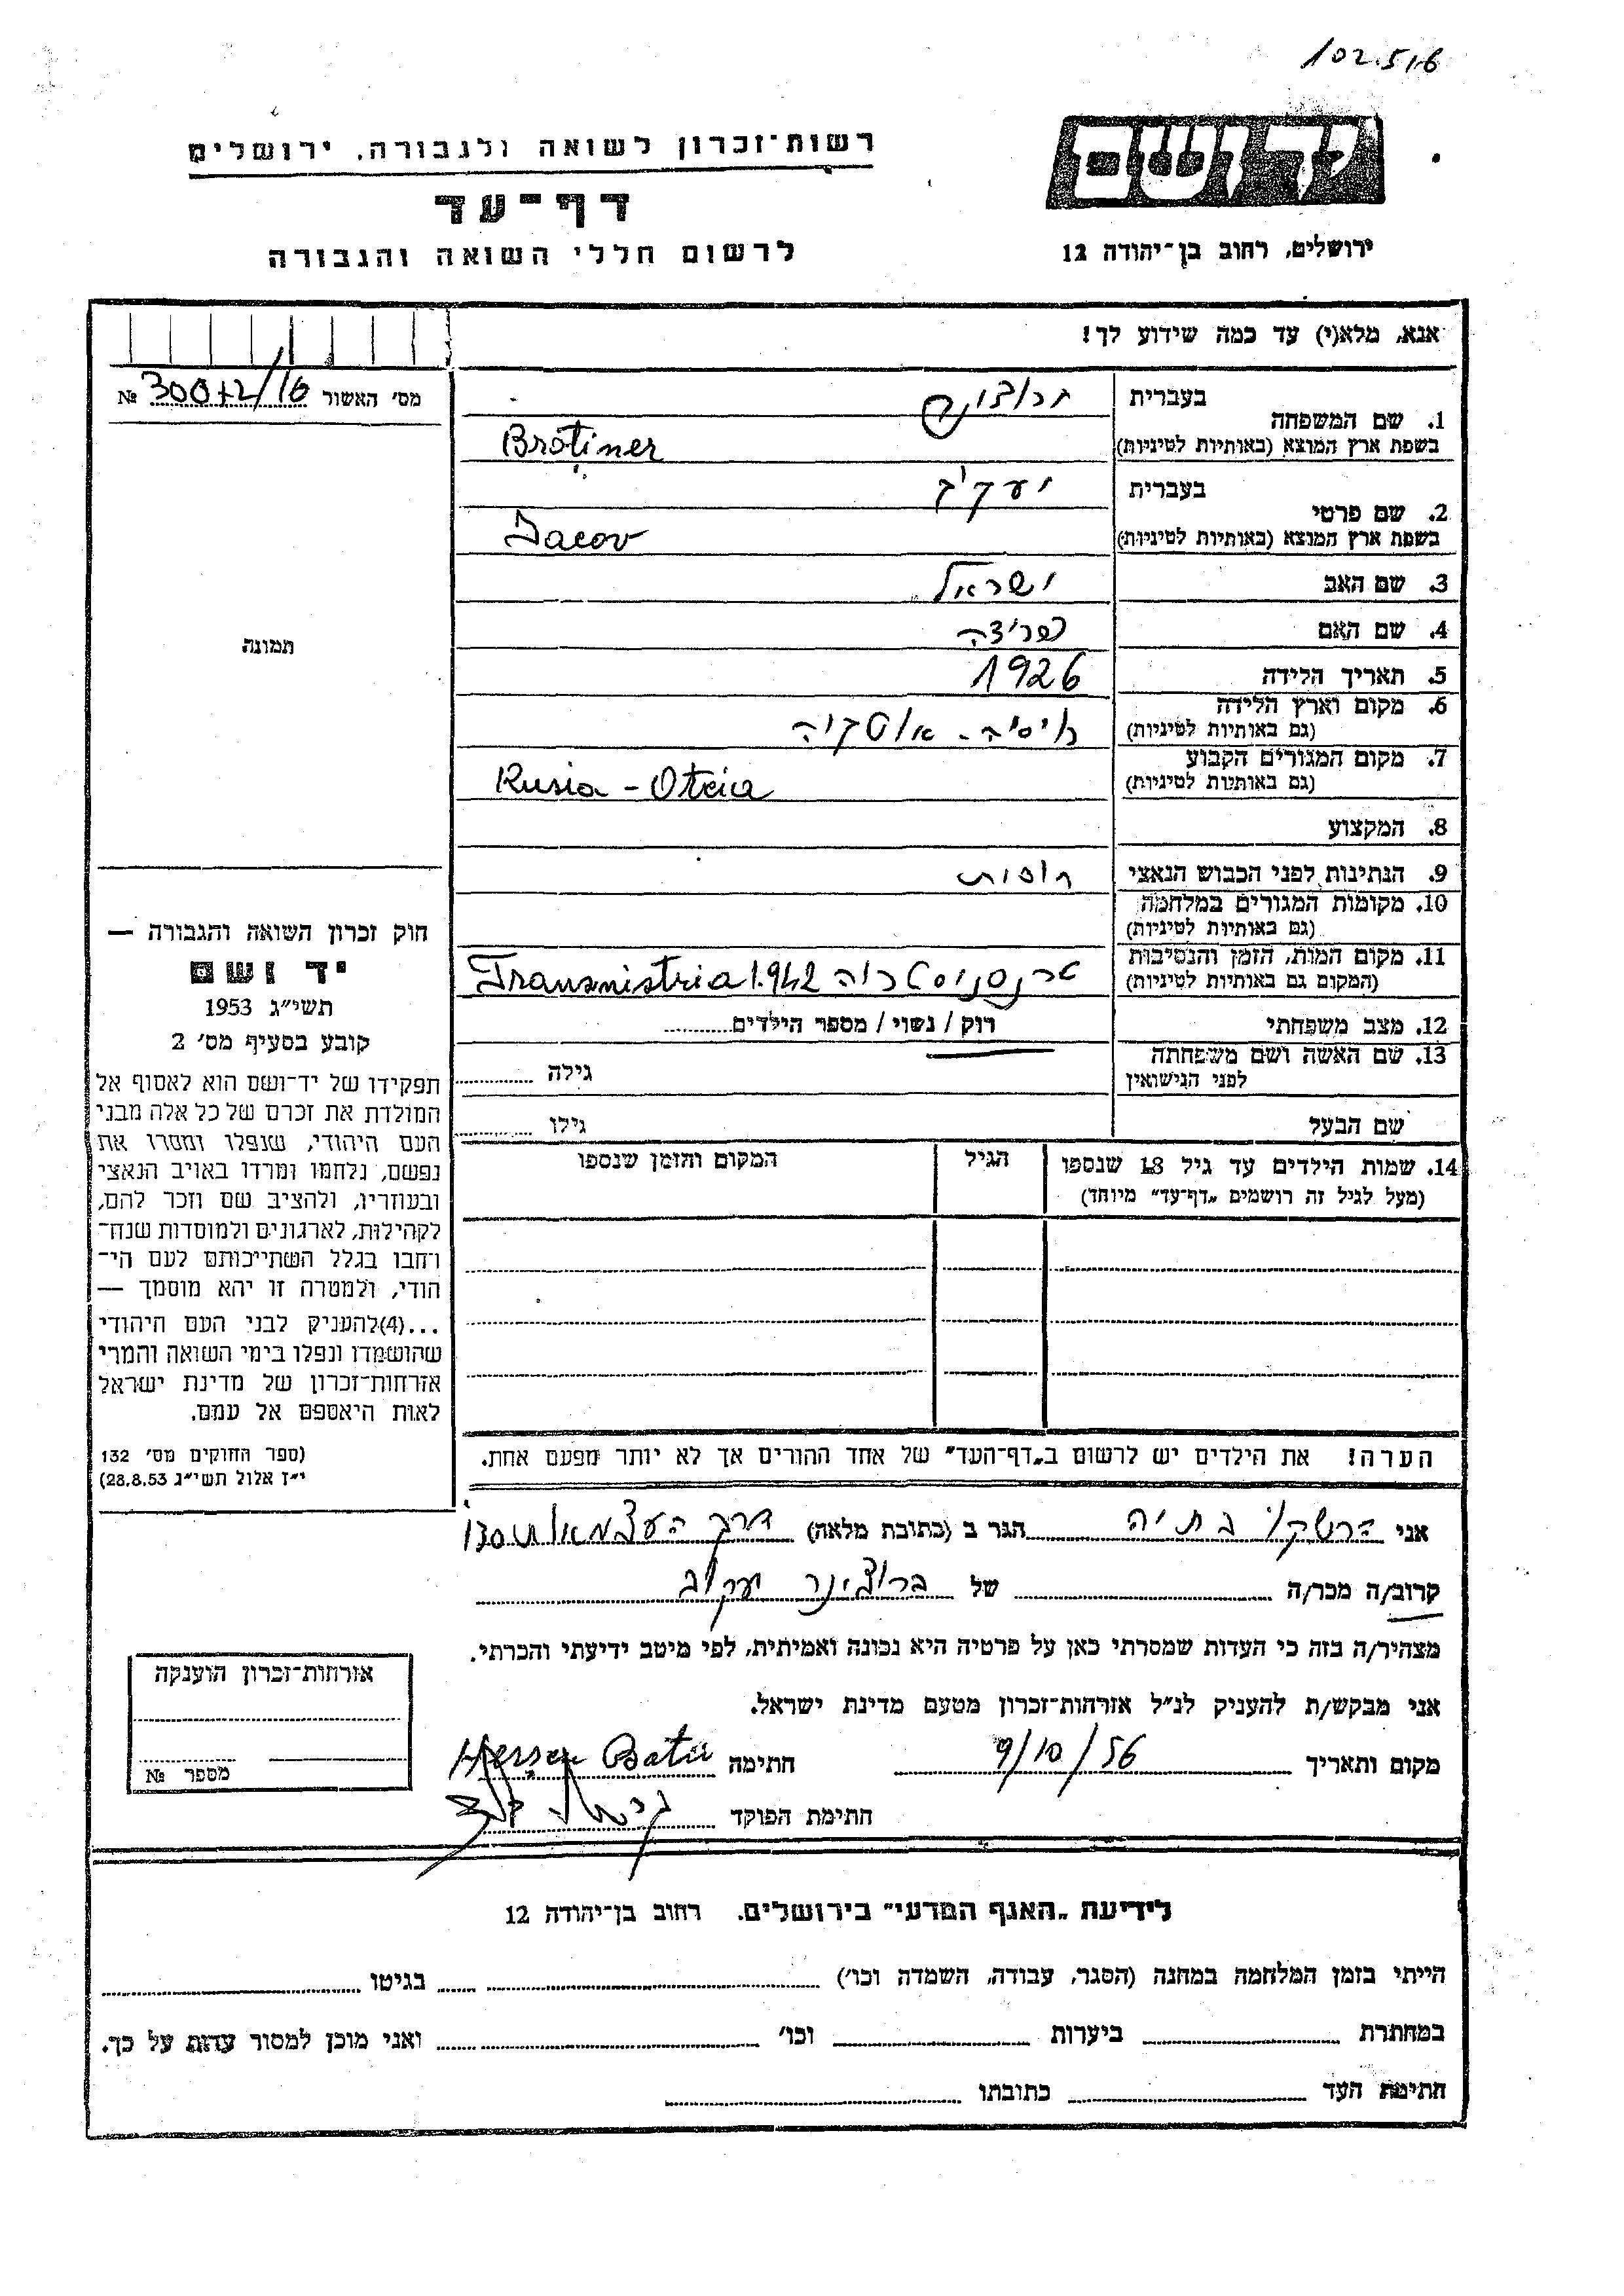 102.516
רשות־זכרון לשואה ולגבורה, ירושלים
יד ושם
דף־עד
לרשום חללי השואה והגבורה
ירושלים, רחוב בן־יהודה 12
אנא, מלא(י) עד כמה שידוע לך!
מס׳ האשור №
1. שם המשפחה
בעברית
בשפת ארץ המוצא (באותיות לטיניות) Brotiner
2. שם פרטי
בעברית יעקיב
בשפת ארץ המוצא (באותיות לטיניות) Jacov
3. שם האב ישראל
4. שם האם פריצה
5. תאריך הלידה 1926
6. מקום וארץ הלידה
(גם באותיות לטיניות)
7. מקום המגורים הקבוע
(גם באותיות לטיניות) Rusia -
8. המקצוע
9. הנתינות לפני הכבוש הנאצי
10. מקומות המגורים במלחמה
(גם באותיות לטיניות)
11. מקום המות, הזמן והנסיבות
(המקום גם באותיות לטיניות) Transnistria 1942
12. מצב משפחתי רוק / נשוי / מספר הילדים
13. שם האשה ושם משפחתה
לפני הנישואין גילה
שם הבעל גילו
14. שמות הילדים עד גיל 18 שנספו
(מעל לגיל זה רושמים „דף־עד" מיוחד)
הגיל
המקום והזמן שנספו
הערה! את הילדים יש לרשום ב„דף־העד" של אחד ההורים אך לא יותר מפעם אחת.
תמונה
חוק זכרון השואה והגבורה —
יד ושם
תשי״ג 1953
קובע בסעיף מס׳ 2
תפקידו של יד־ושם הוא לאסוף אל
המולדת את זכרם של כל אלה מבני
העם היהודי, שנפלו ומסרו את
נפשם, נלחמו ומרדו באויב הנאצי
ובעוזריו, ולהציב שם וזכר להם,
לקהילות, לארגונים ולמוסדות שנח־
רחבו בגלל השתייכותם לעם הי־
הודי, ולמטרה זו יהא מוסמך —
...(4)להעניק לבני העם היהודי
שהושמדו ונפלו בימי השואה והמרי
אזרחות־זכרון של מדינת ישראל
לאות היאספם אל עמם.
(ספר החוקים מס׳ 132
י״ז אלול תשי״ג 28.8.53)
אני הרשקו בתיה הגר ב (כתובת מלאה) דרך העצמאות
קרוב/ה מכר/ה של ברוצינר יעקוב
מצהיר/ה בזה כי העדות שמסרתי כאן על פרטיה היא נכונה ואמיתית, לפי מיטב ידיעתי והכרתי.
אני מבקש/ת להעניק לנ״ל אזרחות־זכרון מטעם מדינת ישראל.
מקום ותאריך 9/10/56 חתימה
חתימת הפוקד
אזרחות־זכרון הוענקה
מספר №
לידיעת „האגף המדעי" בירושלים, רחוב בן־יהודה 12
הייתי בזמן המלחמה במחנה (הסגר, עבודה, השמדה וכו׳) בגיטו
במחתרת ביערות וכו׳ ואני מוכן למסור עדות על כך.
חתימת העד כתובתו